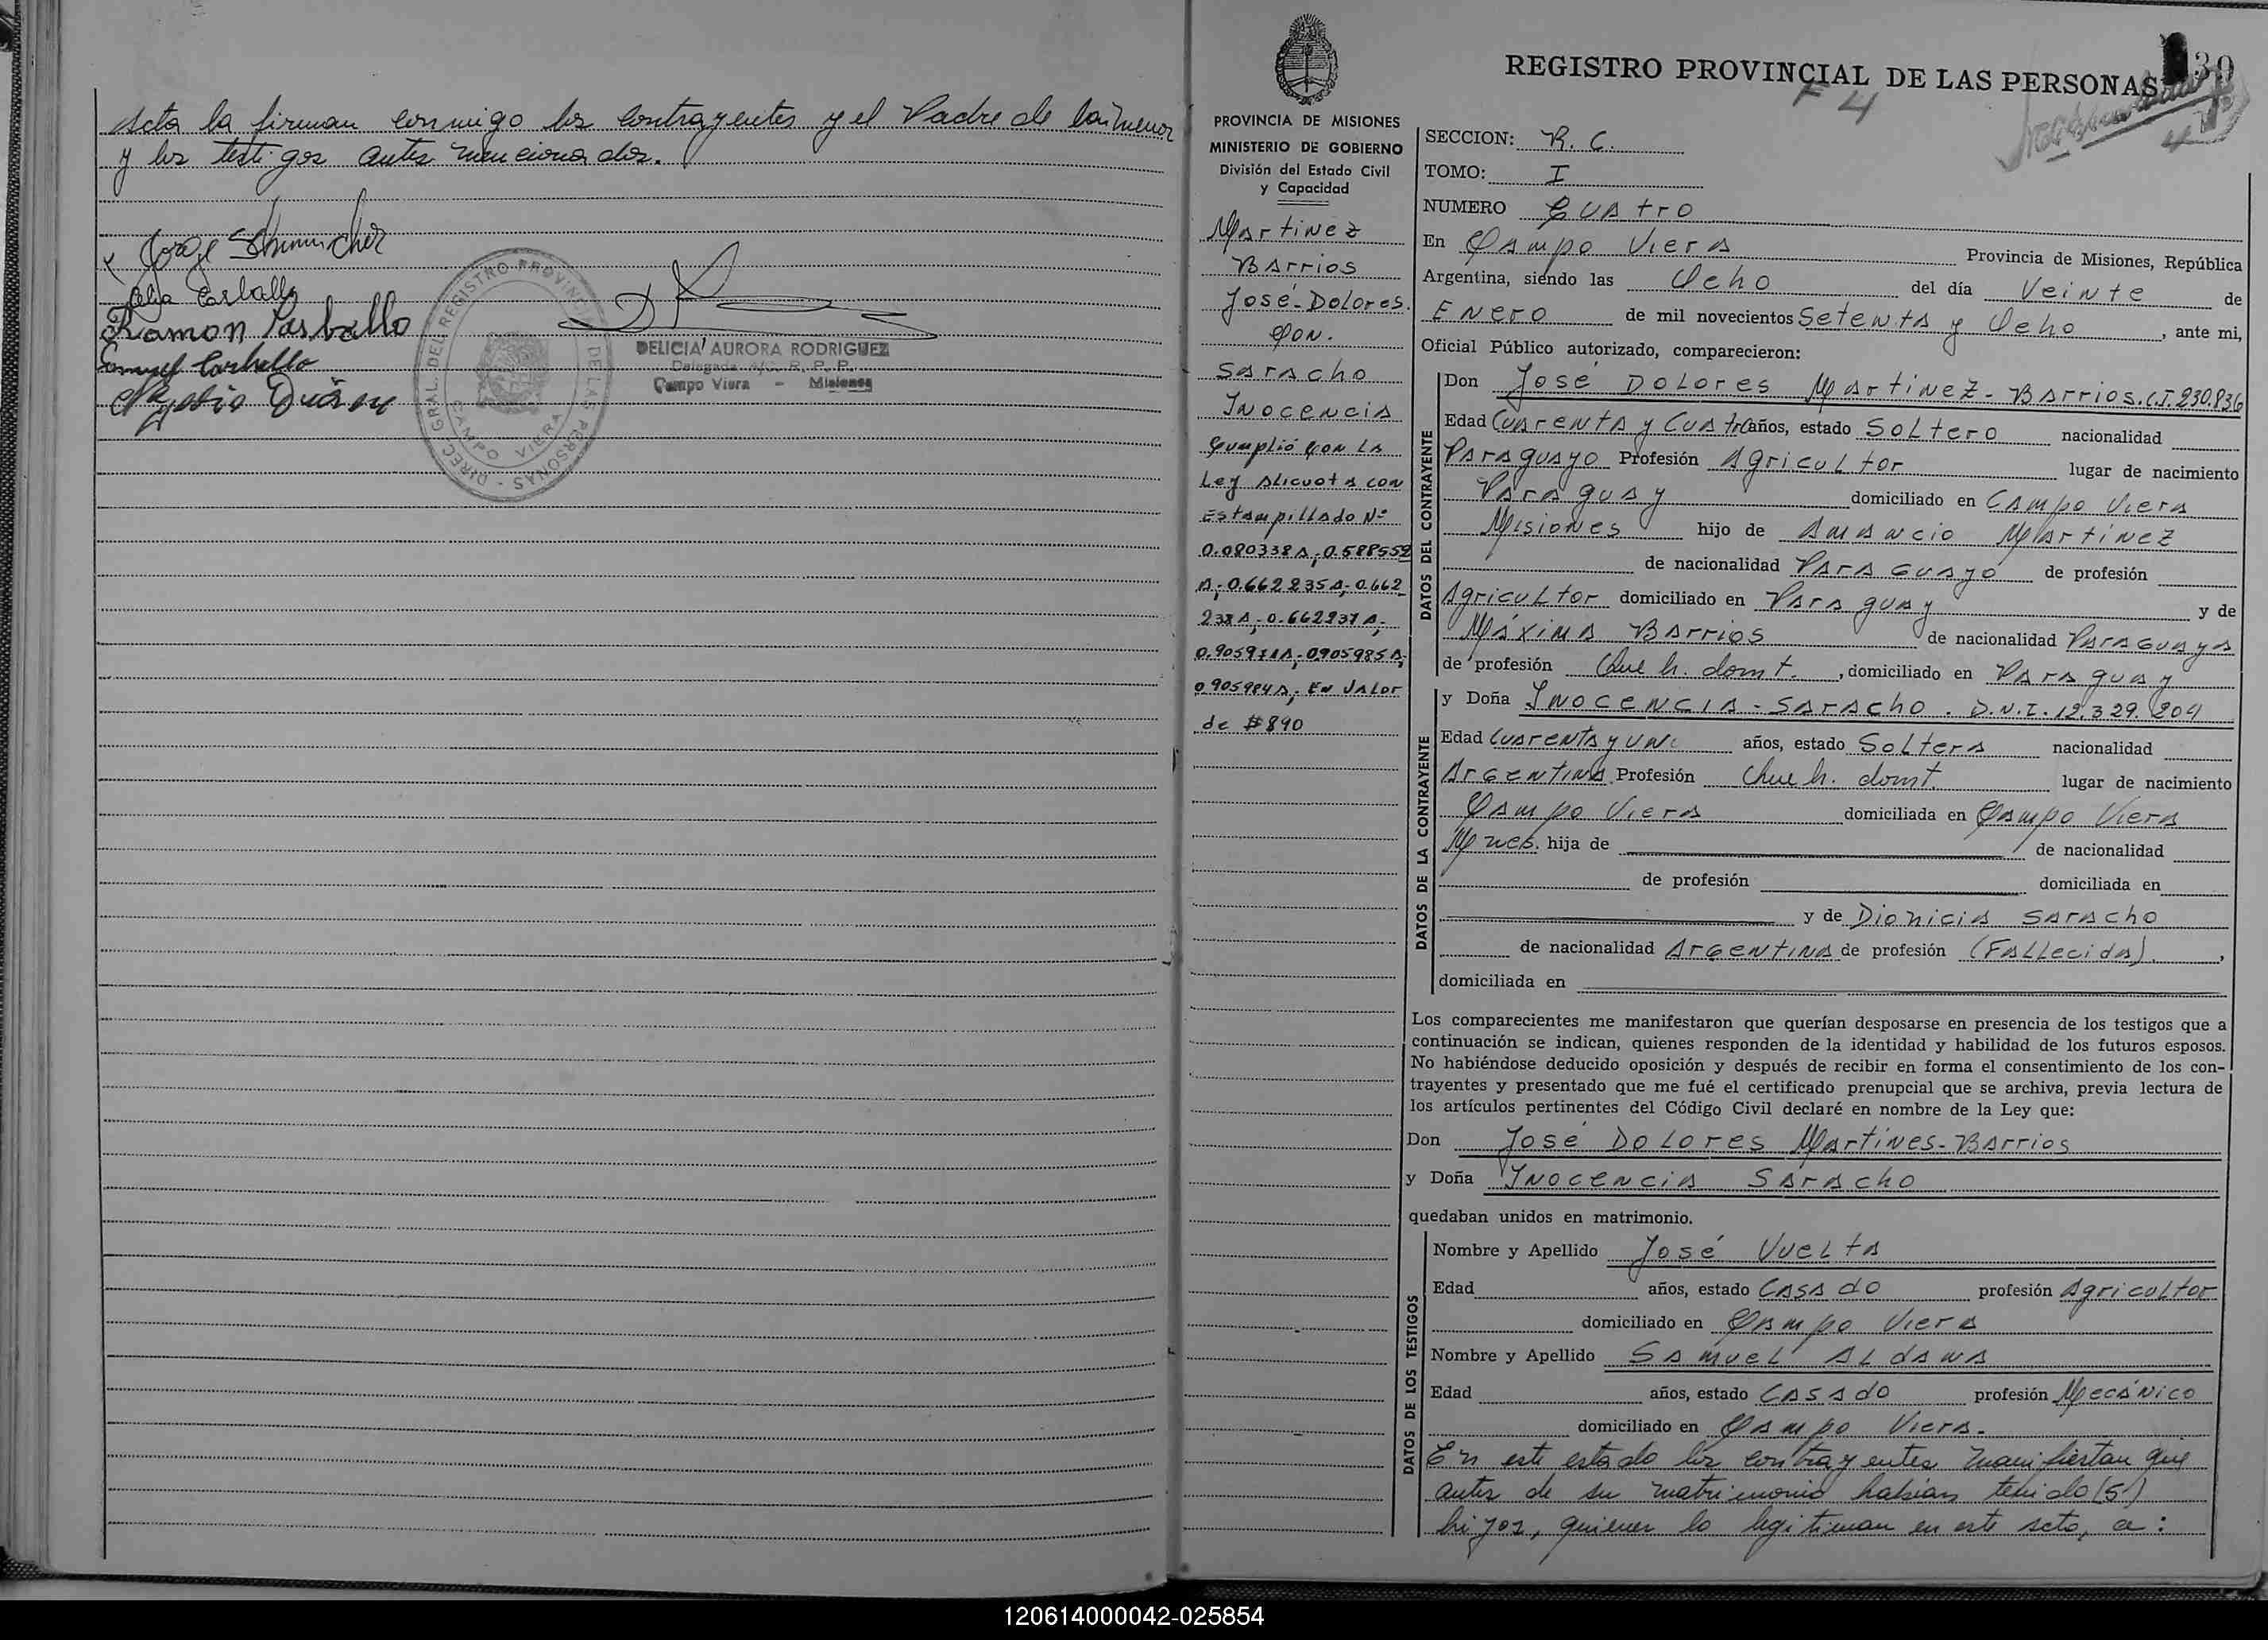 Acta la firman conmigo los contrayentes y el Padre de la menor
y los testigos antes mencionados.
Jorge Schumacher
Ramon Carballo
DIREC. GRAL. DEL REGISTRO PROVINCIAL DE LAS PERSONAS
CAMPO VIERA
DELICIA AURORA RODRIGUEZ
Delegada A/C. R. P. P.
Campo Viera - Misiones
PROVINCIA DE MISIONES
MINISTERIO DE GOBIERNO
División del Estado Civil
y Capacidad
Martinez
Barrios
José-Dolores.
Con.
Saracho
Inocencia
Cumplió con la
Ley alicuota con
Estampillado Nº
0.080338A; 0.588552
A; 0.662235A; 0.662
238A; 0.662237A;
0.905971A; 0905985A;
0905984A; En valor
de $890
REGISTRO PROVINCIAL DE LAS PERSONAS
30
F 4
SECCION: R. C.
TOMO: I
NUMERO Cuatro
En Campo Viera Provincia de Misiones, República
Argentina, siendo las Ocho del día Veinte de
Enero de mil novecientos Setenta y Ocho, ante mi,
Oficial Público autorizado, comparecieron:
DATOS DEL CONTRAYENTE
Don José Dolores Martinez-Barrios. C.I. 230.836
Edad Cuarenta y Cuatro años, estado Soltero nacionalidad
Paraguayo Profesión Agricultor lugar de nacimiento
Paraguay domiciliado en Campo Viera
Misiones hijo de Amancio Martínez
de nacionalidad Paraguayo de profesión
Agricultor domiciliado en Paraguay y de
Máxima Barrios de nacionalidad Paraguaya
de profesión Que h. domt., domiciliado en Paraguay
DATOS DE LA CONTRAYENTE
y Doña Inocencia-Saracho. D.N.I. 12.329.204
Edad Cuarenta y un años, estado Soltera nacionalidad
Argentina Profesión Que h. domt. lugar de nacimiento
Campo Viera domiciliada en Campo Viera
Mnes. hija de de nacionalidad
de profesión domiciliada en
y de Dionicia Saracho
de nacionalidad Argentina de profesión (Fallecida).,
domiciliada en
Los comparecientes me manifestaron que querían desposarse en presencia de los testigos que a
continuación se indican, quienes responden de la identidad y habilidad de los futuros esposos.
No habiéndose deducido oposición y después de recibir en forma el consentimiento de los con-
trayentes y presentado que me fué el certificado prenupcial que se archiva, previa lectura de
los artículos pertinentes del Código Civil declaré en nombre de la Ley que:
Don José Dolores Martínes-Barrios
y Doña Inocencia Saracho
quedaban unidos en matrimonio.
DATOS DE LOS TESTIGOS
Nombre y Apellido José Vuelta
Edad años, estado Casado profesión Agricultor
domiciliado en Campo Viera
Nombre y Apellido Samuel Aldana
Edad años, estado Casado profesión Mecánico
domiciliado en Campo Viera.
En este estado los contrayentes manifiestan que
antes de su matrimonio habian tenido (5)
hijos, quienes lo legitiman en este acto, a:
120614000042-025854